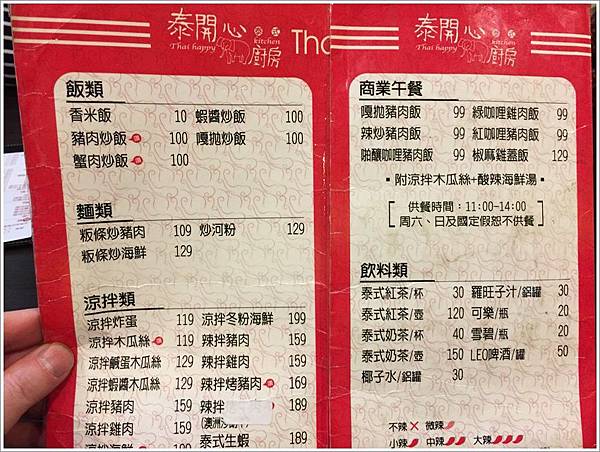 泰開心
泰式
kitchen
Thai happy
廚房
Tha
飯類
香米飯 10 蝦醬炒飯 100
豬肉炒飯 100 嘎拋炒飯 100
蟹肉炒飯 100
麵類
粄條炒豬肉 109 炒河粉 129
粄條炒海鮮 129
涼拌類
涼拌炸蛋 119 涼拌冬粉海鮮 199
涼拌木瓜絲 119 辣拌豬肉 159
涼拌鹹蛋木瓜絲 129 辣拌雞肉 159
涼拌蝦醬木瓜絲 129 辣拌烤豬肉 169
涼拌豬肉 159 辣拌 189
涼拌雞肉 159
泰式生蝦 189
泰開心
泰式
kitchen
Thai happy
廚房
商業午餐
嘎拋豬肉飯 99 綠咖哩雞肉飯 99
辣炒豬肉飯 99 紅咖哩豬肉飯 99
啪釀咖哩豬肉飯 99 椒麻雞蓋飯 129
▪ 附涼拌木瓜絲+酸辣海鮮湯 ▪
供餐時間：11:00-14:00
周六、日及國定假恕不供餐
飲料類
泰式紅茶/杯 30 羅旺子汁/鋁罐 30
泰式紅茶/壺 120 可樂/瓶 20
泰式奶茶/杯 40 雪碧/瓶 20
泰式奶茶/壺 150 LEO啤酒/罐 50
椰子水/鋁罐 30
不辣 微辣
小辣 中辣 大辣